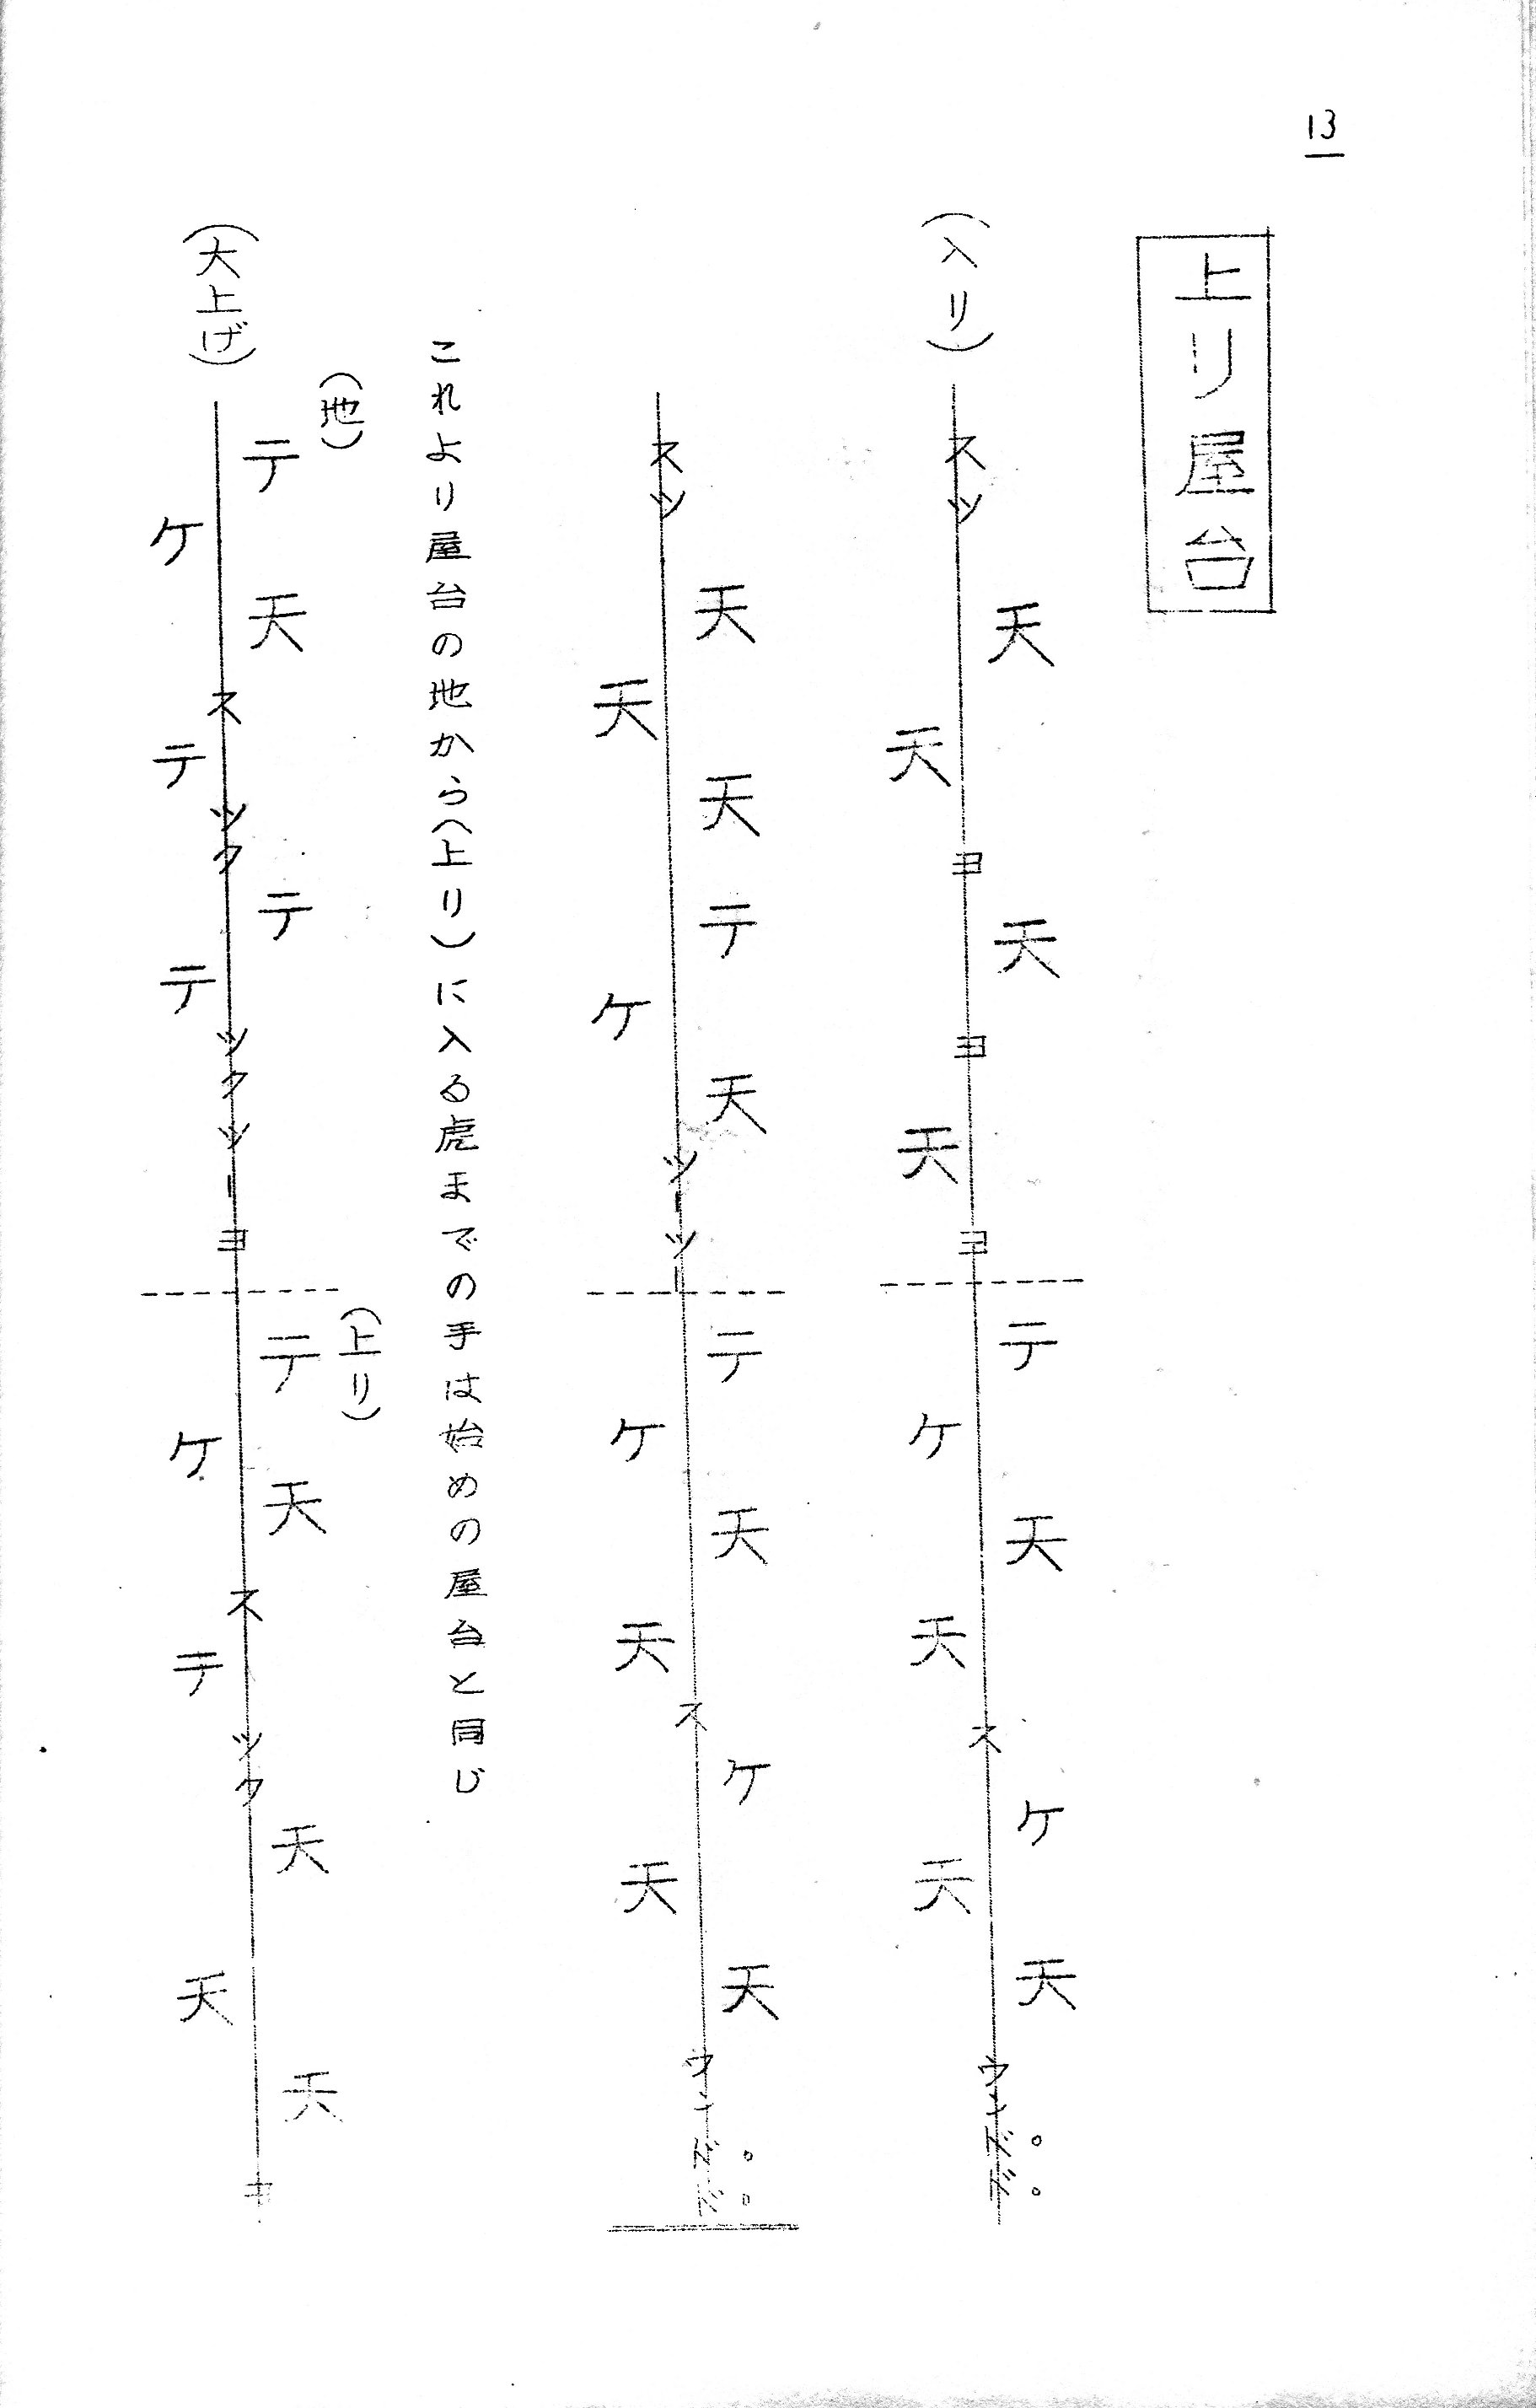 13
上リ屋台
(入リ)
スツ天天ヨ天ヨ天ヨテケ天天スケ天天ウンドド
スツ天天天テケ天ツーツーテケ天天スケ天天ウンドド
これより屋台の地から(上リ)に入る虎までの手は始めの屋台と同じ
(地)
(上リ)
(大上げ)
テケ天ステツクテテツクツーヨテケ天ステツク天天天